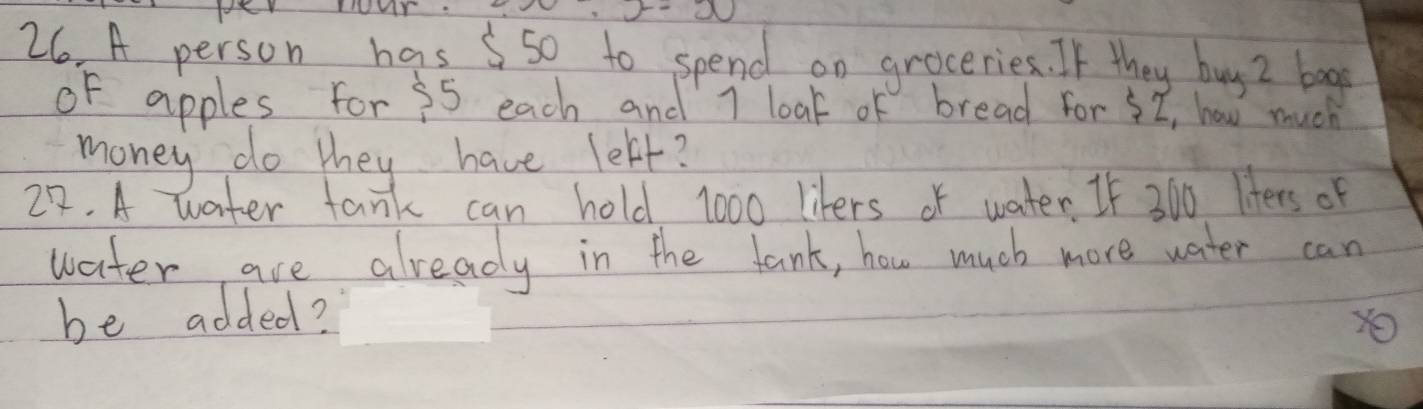 per hour.
26. A person has $50 to spend on groceries. If they buy 2 bags
of apples for $5 each and 1 loaf of bread for $2, how much
money do they have left?
27. A water tank can hold 1000 liters of water. If 300 liters of
water are already in the tank, how much more water can
be added?